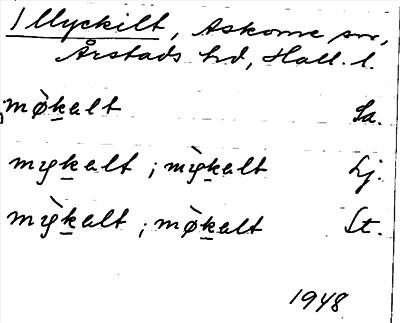 1 Myckilt, Askome sn,
Årstads hd, Hall. l.
mø̀kalt Sa.
mykalt ; mỳkalt Lj.
mỳkalt ; mø̀kalt St.
1948